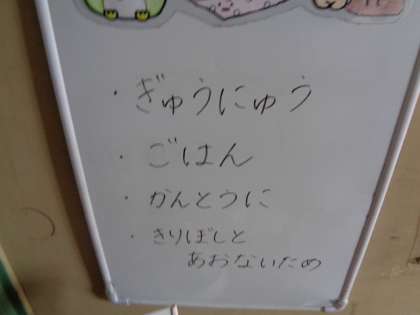 ・ぎゅうにゅう
・ごはん
・かんとうに
・きりぼしと
あおないため